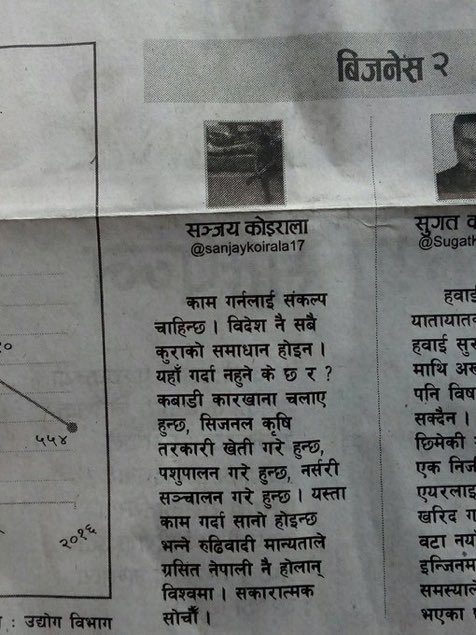 बिजनेस २
सञ्जय कोइराला
@sanjaykoirala17
काम गर्नलाई संकल्प
चाहिन्छ । विदेश नै सबै
कुराको समाधान होइन ।
यहाँ गर्दा नहुने के छ र ?
कबाडी कारखाना चलाए
हुन्छ, सिजनल कृषि
तरकारी खेती गरे हुन्छ,
पशुपालन गरे हुन्छ, नर्सरी
सञ्चालन गरे हुन्छ । यस्ता
काम गर्दा सानो होइन्छ
भन्ने रुढिवादी मान्यताले
ग्रसित नेपाली नै होलान्
विश्वमा । सकारात्मक
सोचौँ ।
सुगत
@Sugat
हवाई
यातायात
हवाई सुर
माथि अ
पनि विष
सक्दैन ।
छिमेकी
एक निर्ज
एयरलाइ
खरिद ग
वटा नयाँ
इन्जिनम
समस्याले
भएका
५५४
२०१६
: उद्योग विभाग